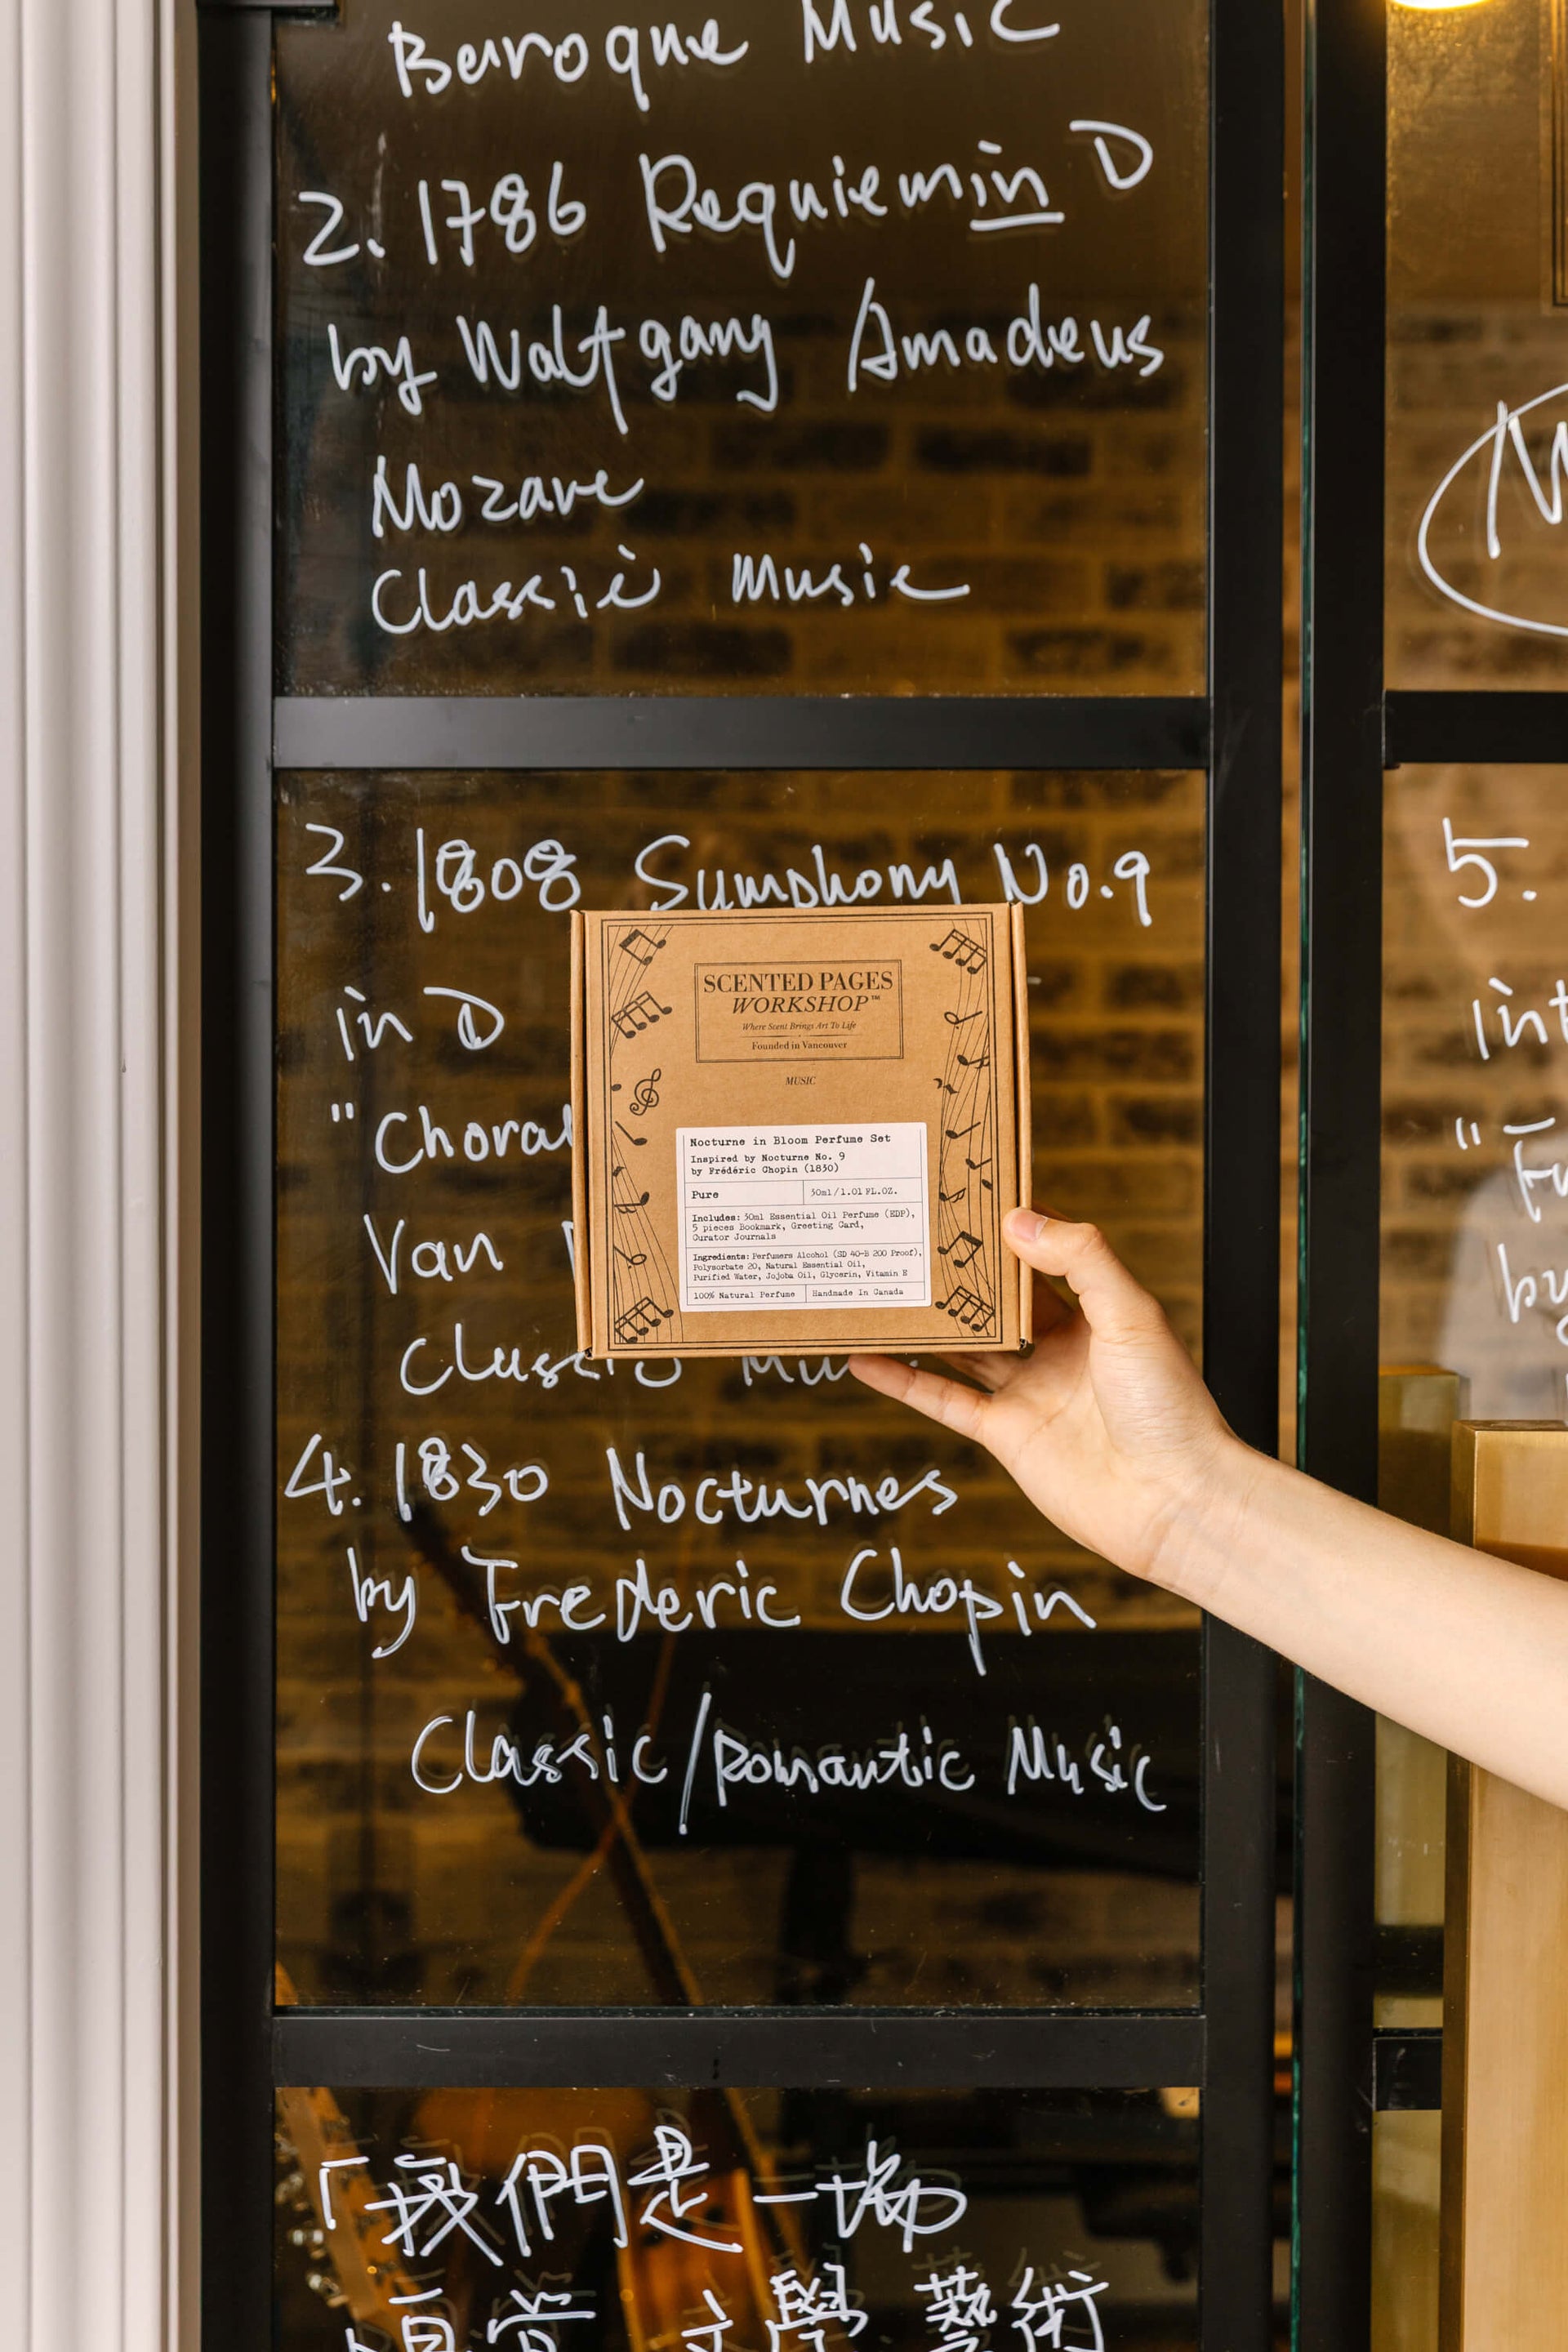 Baroque Music
2. 1786 Requiem in D
by Walfgang Amadeus
Mozare
Classic Music
3. 1808 Symphony No.9
in D
"Choral
Van
Classic Mu
4. 1830 Nocturnes
by Frederic Chopin
Classic/Romantic Music
「我們是一場
文學 藝術
SCENTED PAGES
WORKSHOP™
Where Scent Brings Art To Life
Founded in Vancouver
MUSIC
Nocturne in Bloom Perfume Set
Inspired by Nocturne No. 9
by Frédéric Chopin (1830)
Pure
30ml/1.01 FL.OZ.
Includes: 30ml Essential Oil Perfume (EDP),
5 pieces Bookmark, Greeting Card,
Curator Journals
Ingredients: Perfumers Alcohol (SD 40-B 200 Proof),
Polysorbate 20, Natural Essential Oil,
Purified Water, Jojoba Oil, Glycerin, Vitamin E
100% Natural Perfume
Handmade In Canada
5.
int
by